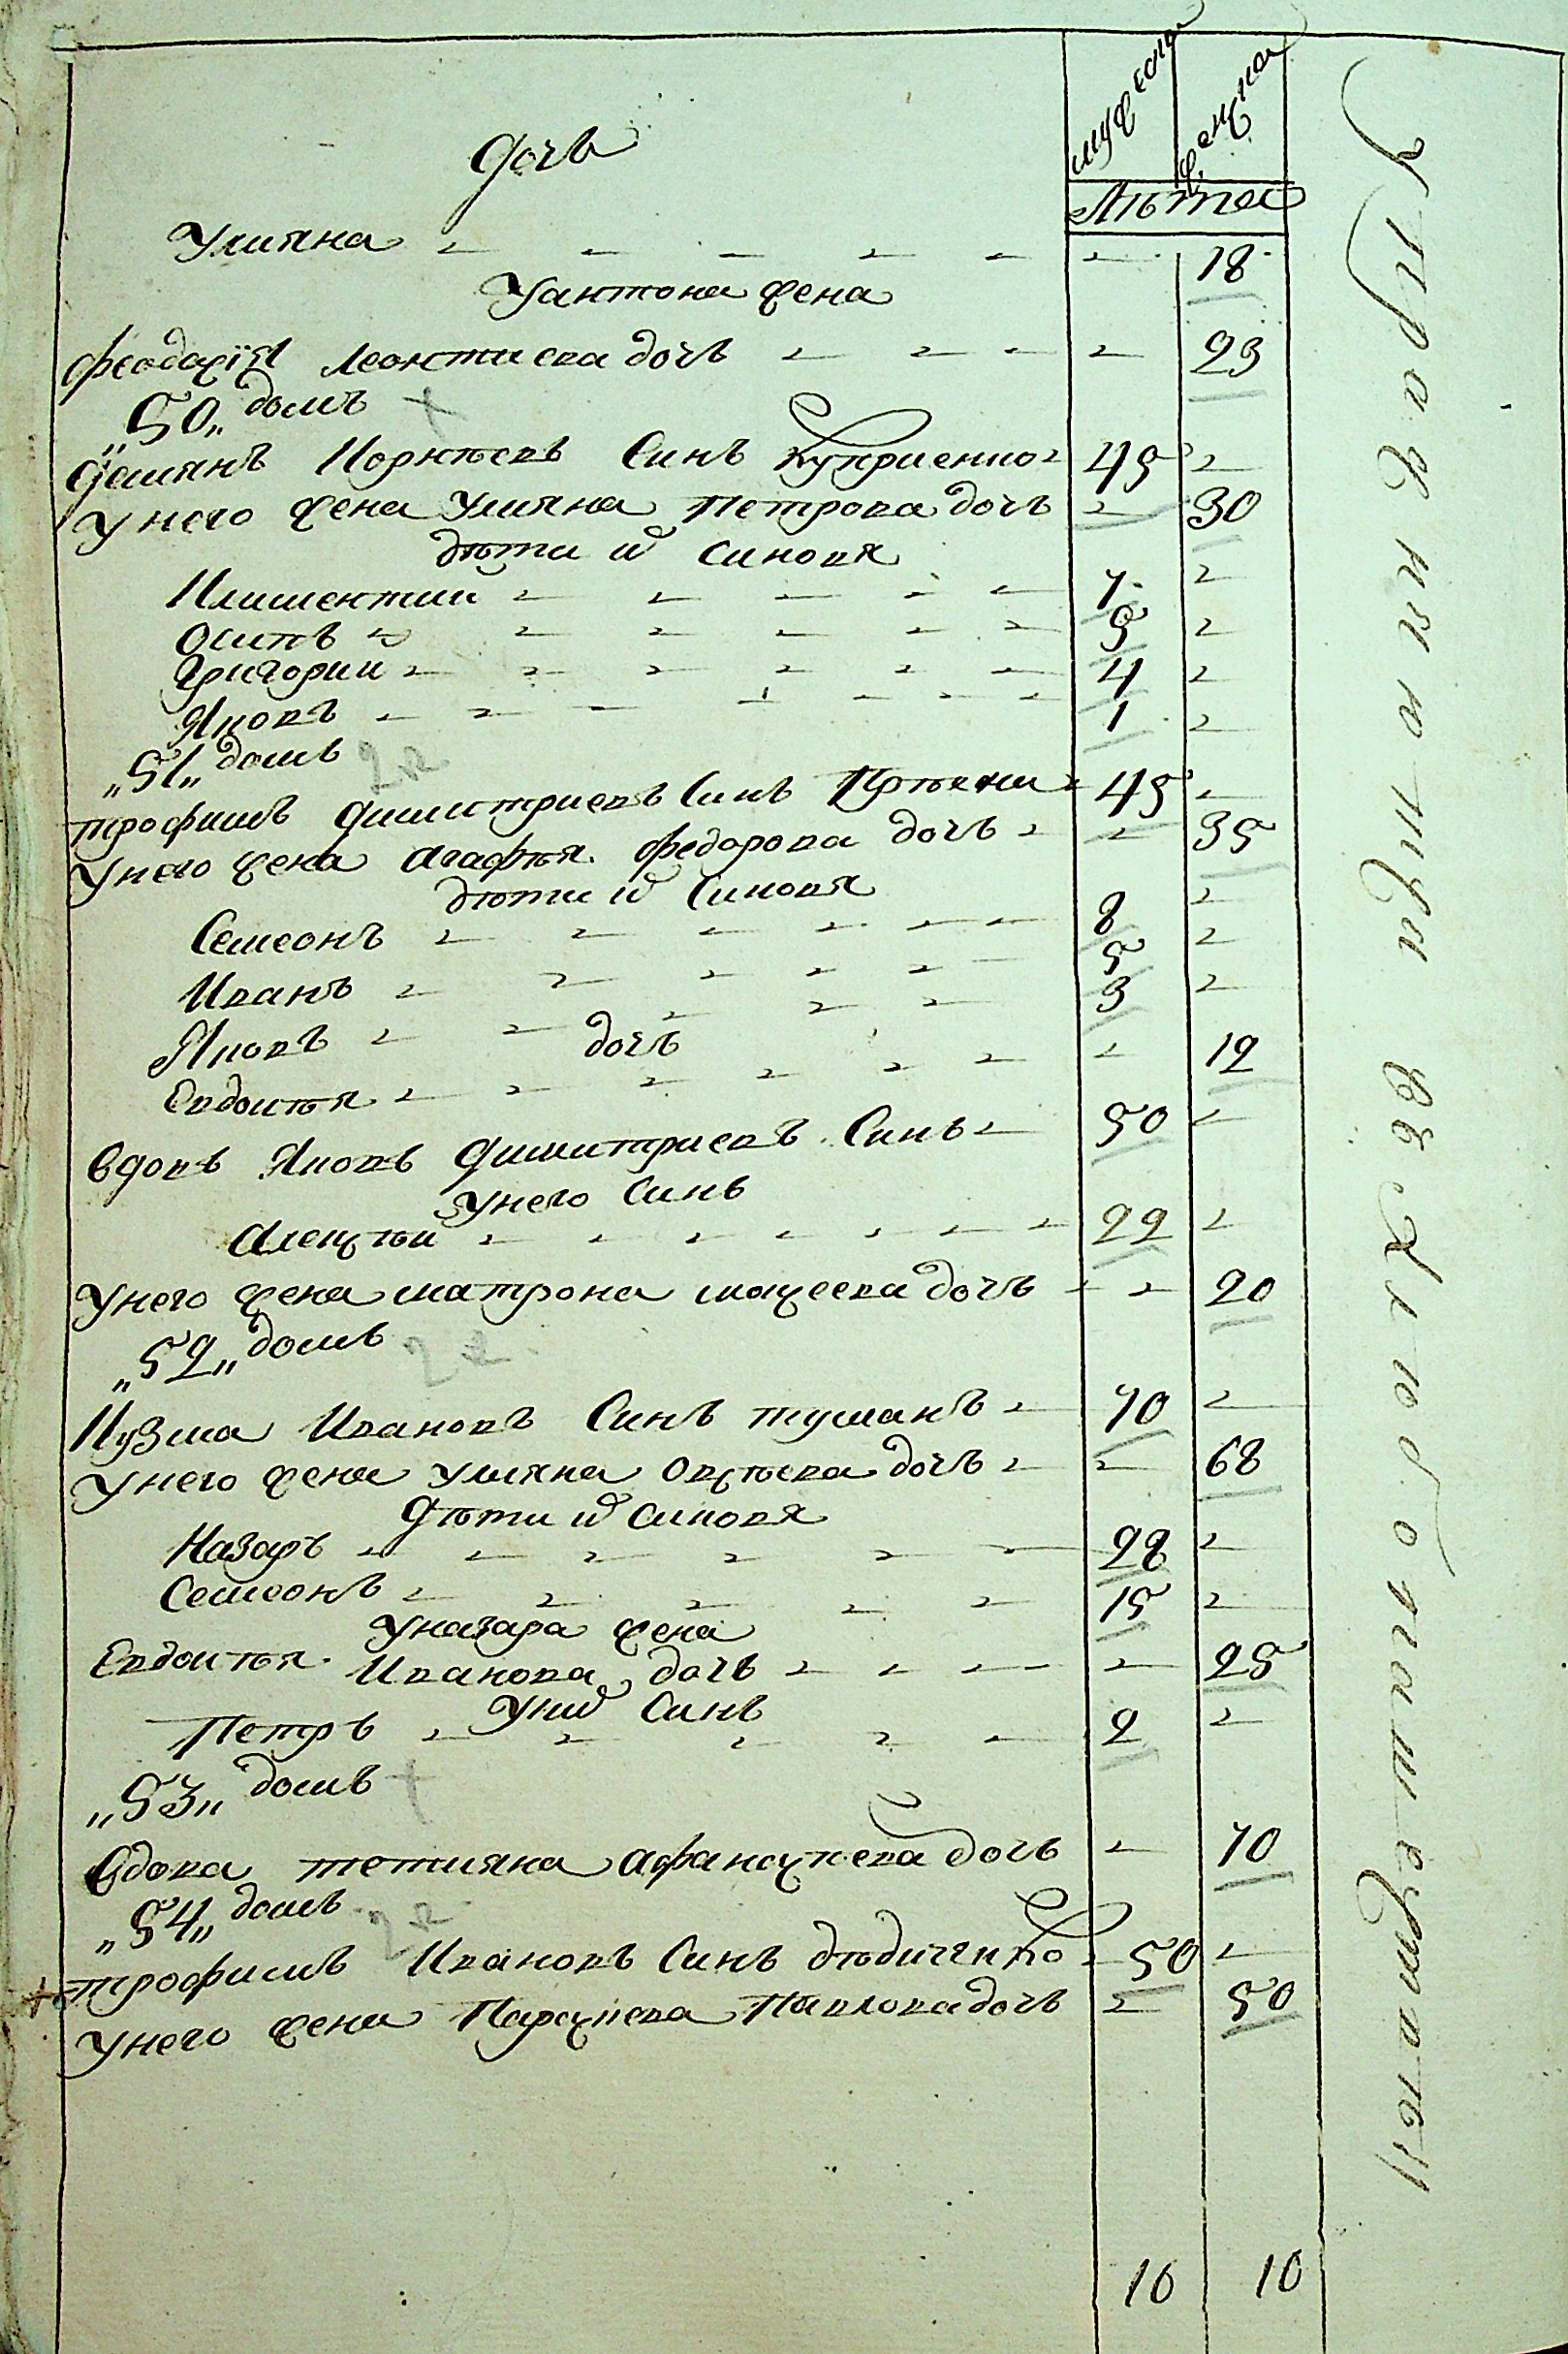 мужеска женска
Лѣта
Дочь
Улияна 18
У антона жена
Феодосїя леонтиева дочь 23
„50„ домъ
Демянъ Корнѣевъ Синъ Куприенко 45
У него жена Улияна Петрова дочь 30
дѣти их синовя
Климентии 7
Осипъ 5
Григории 4
Яковъ 1
„51„ домъ
трофимъ Димитриевъ Синъ 45
У него жена агафѣя Федорова дочь 35
дѣти их Синовя
Семеонъ 8
Иванъ 5
Яковъ 3
дочь
Евдокѣя 12
Вдовъ Яковъ Димитриевъ Синъ 50
У него Синъ
Алексѣи 22
У него жена матрона мосеева дочь 20
„52„ домъ
Кузма Ивановъ Синъ туманъ 70
У него жена улияна Овсѣева дочь 68
Дѣти их синовя
Назаръ 28
Семеонъ 15
У назара жена
Евдокѣя Иванова дочь 25
У них Синъ
Петръ 2
„53„ домъ
Вдова тетияна афанасиева дочь 70
„54„ домъ
трофимъ Ивановъ Синъ дѣдиченко 50
У него жена Параскева Павлова дочь 50
16 10